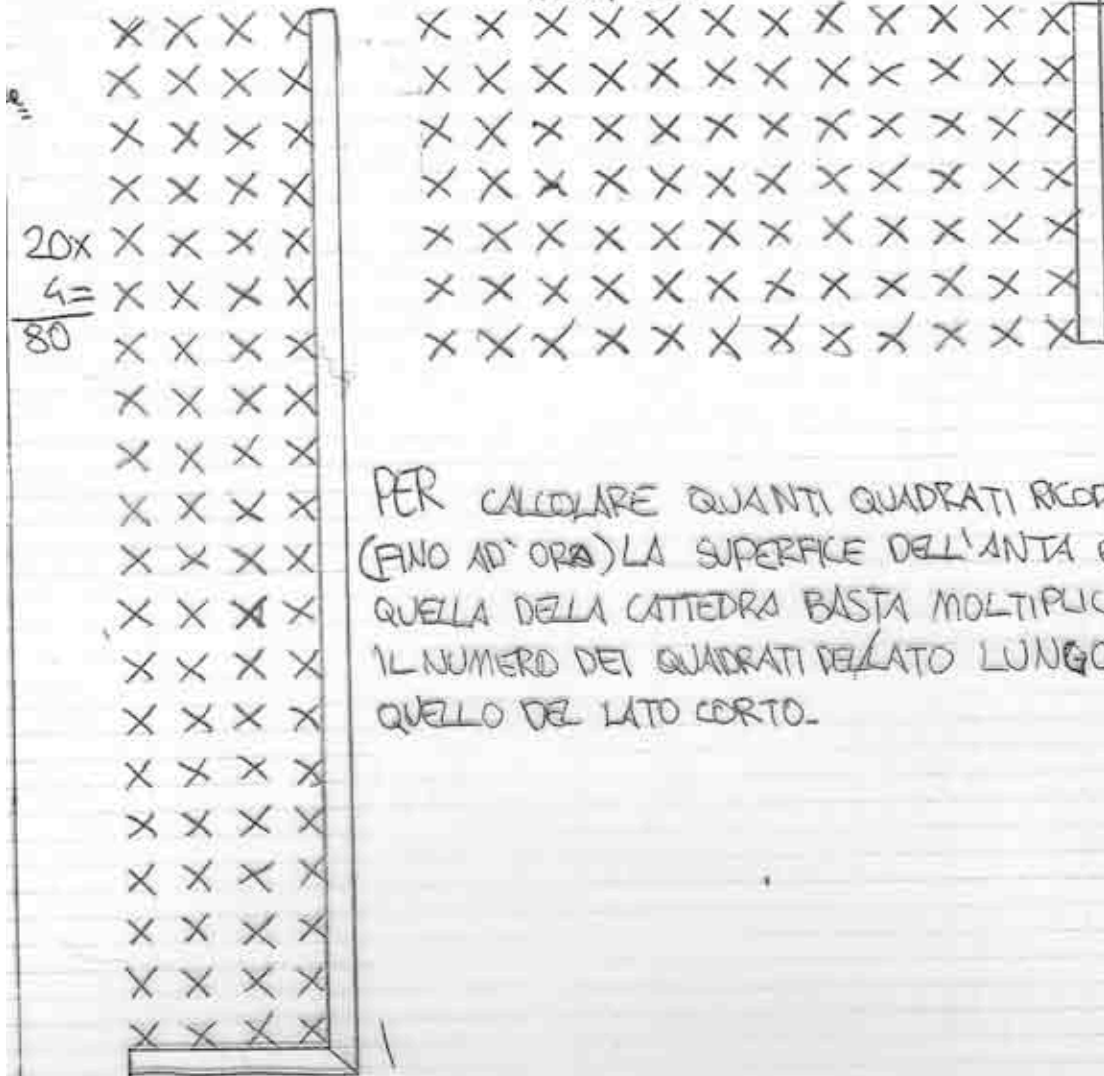 20x
4=
80
PER CALCOLARE QUANTI QUADRATI RICOP
(FINO AD' ORA) LA SUPERFICE DELL'ANTA E
QUELLA DELLA CATTEDRA BASTA MOLTIPLIC
IL NUMERO DEI QUADRATI DEL LATO LUNGO
QUELLO DEL LATO CORTO.